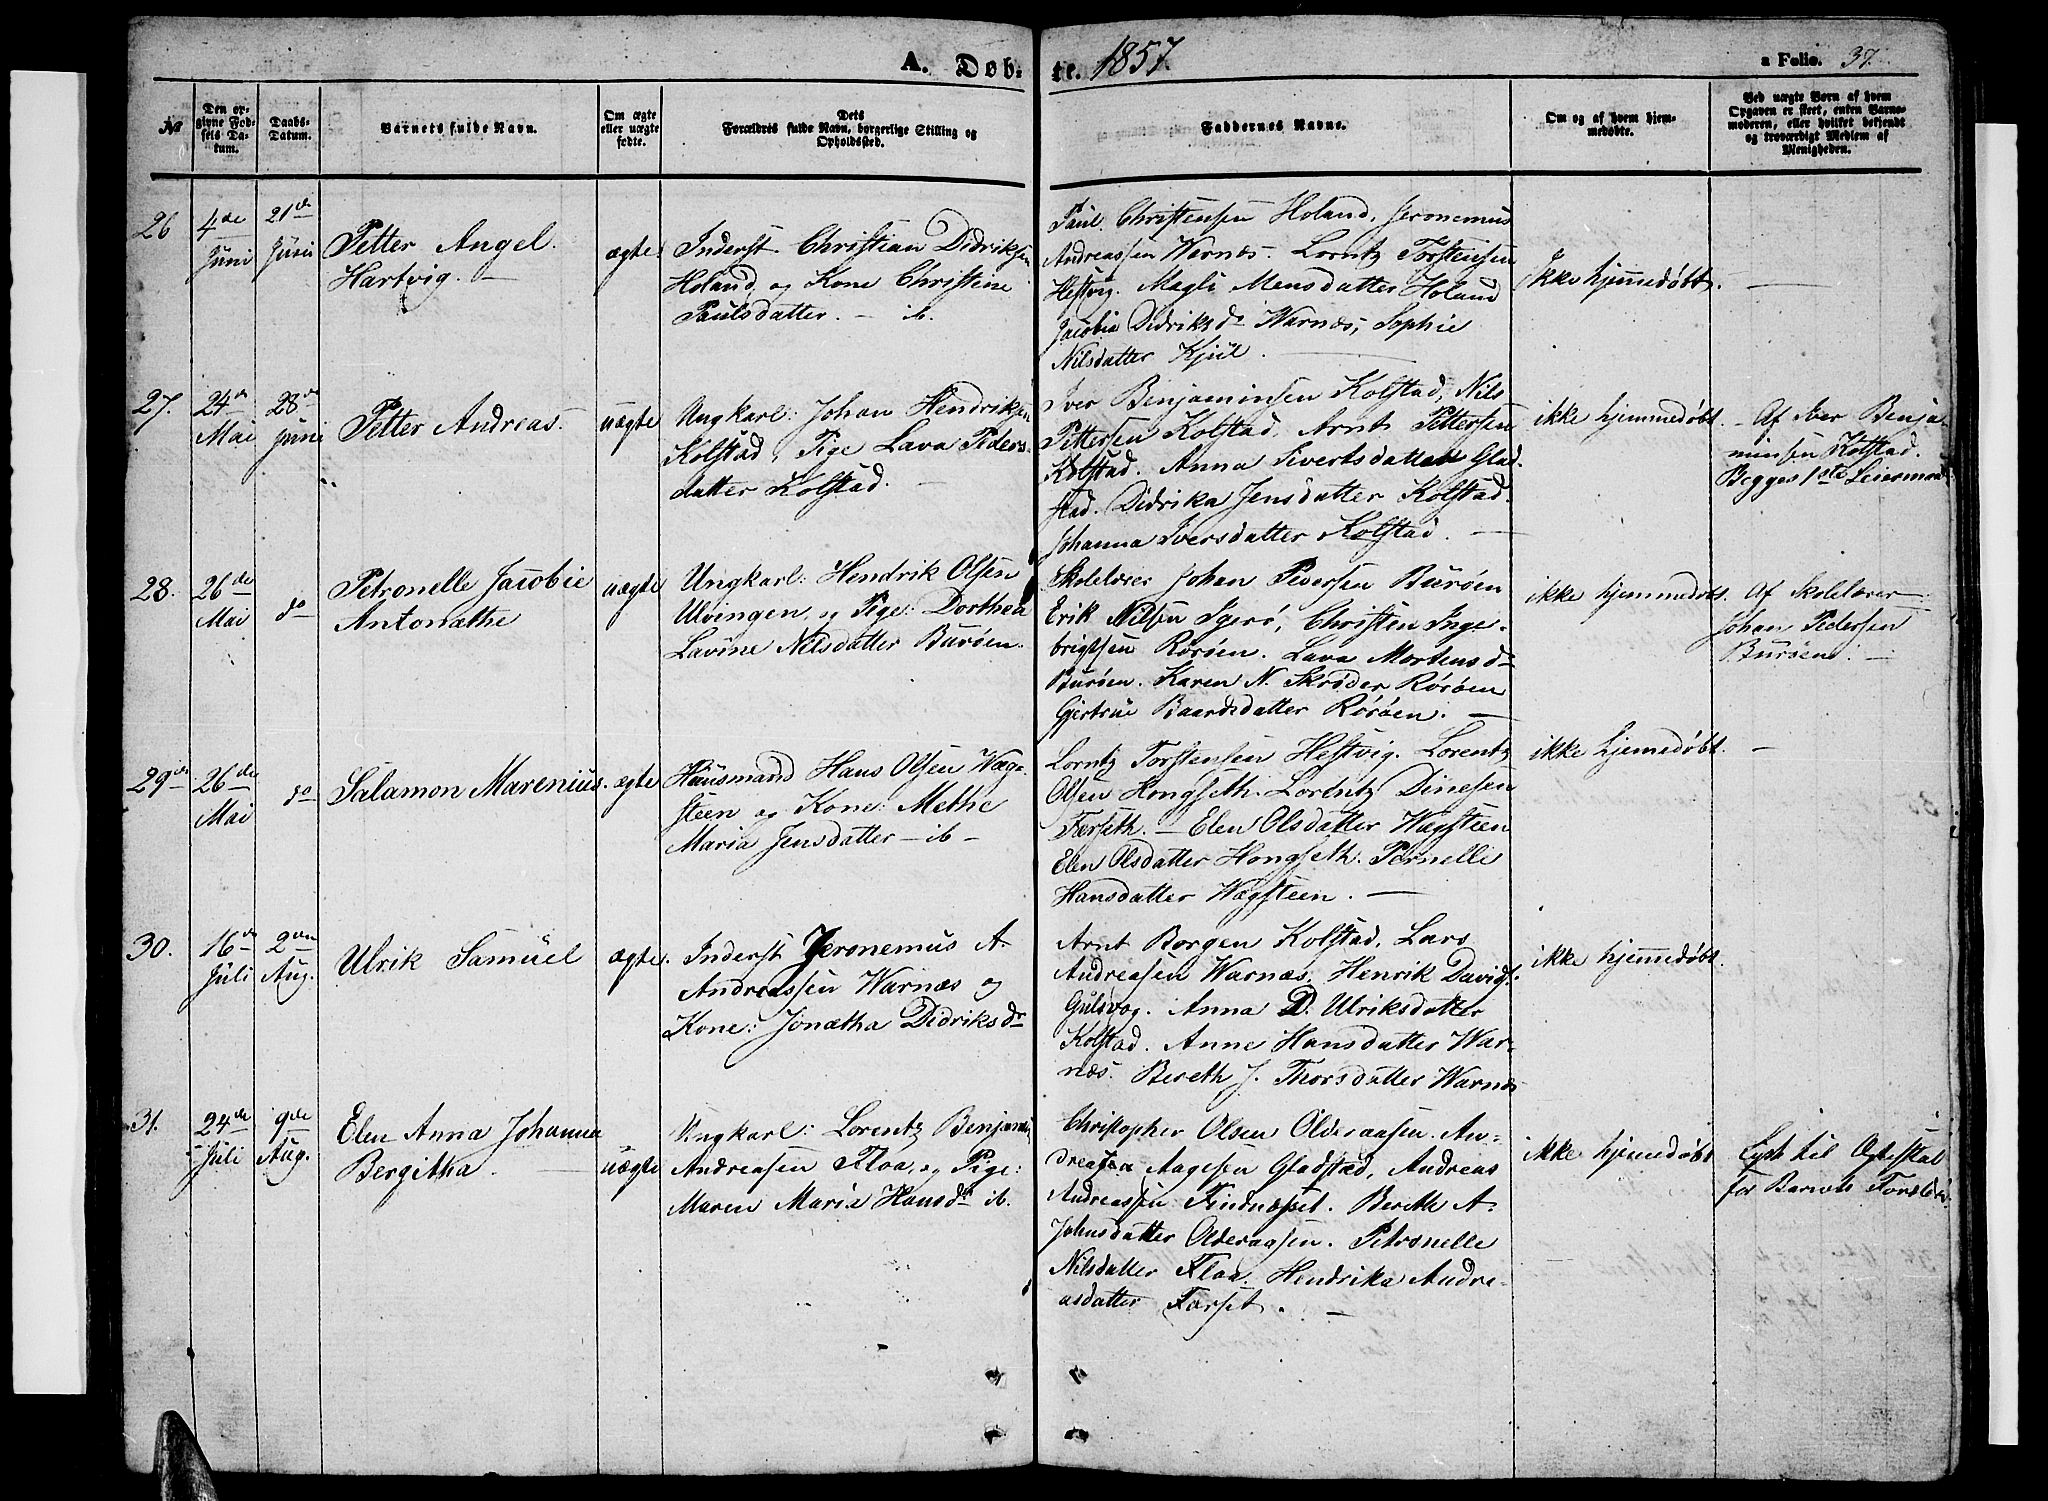 A. Døb-
te. 1857.
a Folio. 37.
№
Den op-
givne Fød-
sels Da-
tum.
Daabs-
Datum.
Barnets fulde Navn.
Om ægte
eller uægte
fødte.
Dets
Forældres fulde Navn, borgerlige Stilling og
Opholdssted.
Faddernes Navne.
Om og af hvem hjem-
medøbte.
Ved uægte Børn af hvem
Opgaven er skeet, enten Barne-
moderen, eller hvilket bekjendt
og troværdigt Medlem af
Menigheden.
26
4de
Juni
21de
Juni
Petter Angel
Hartvig. —
ægte.
Inderst Christian Didriksen
Holand, og Kone Christine
Paulsdatter. — ib.
Paul Christensen Holand, Jeronemus
Andreassen Wernæs. Lorntz Torstensen
Hestvig. Magli Mensdatter Holand
Jacobia Didriksdr Warnæs, Sophie
Nilsdatter Kjul. —
Ikke hjemmedøbt.
—
27.
24de
Mai
28de
Juni
Petter Andreas.
uægte
Ungkarl: Johan Hendriksen
Kolstad, Pige Lava Peders-
datter Kolstad. —
Iver Benjaminsen Kolstad, Nils
Pettersen Kolstad, Arnt Pettersen
Kolstad. Anna Sivertsdatter Glad-
stad. Didrika Jensdatter Kolstad.
Johanna Iversdatter Kolstad. —
ikke hjemmedøbt.
- Af Iver Benja-
minsen Kolstad.
Begges 1ste Leiermaal
28.
26de
Mai
do
Petronelle Jacobie
Antonæthe
uægte
Ungkarl: Hendrik Olsen
Ulvingen, og Pige: Dorthea
Lavine Nilsdatter Burøen.
Skolelærer Johan Pedersen Burøen
Erik Nilsen Igerø, Christen Inge-
brigtsen Rørøen. Lava Mortensdr
Burøen. Karen N. Skrøder Rørøen
Gjertrue Baardsdatter Rørøen. —
ikke hjemmedøbt.
Af Skolelærer
Johan Pedersen
Burøen. —
29de
26de
Mai
do
Salamon Marenius.
ægte
Huusmand Hans Olsen Wæg-
steen og Kone: Methe
Maria Jensdatter — ib —
Lorntz Torstensen Hestvig. Lorentz
Olsen Hongseth. Lorentz Dinesen
Færseth. — Elen Olsdatter Wægsteen
Elen Olsdatter Hongseth. Pernelle
Hansdatter Wægsteen. —
ikke hjemedøbt.
—
30.
16de
Juli
2den
Aug.
Ulrik Samuel
ægte.
Inderst Jeronemus A.
Andreassen Warnæs og
Kone: Jonætha Didriksdr
Arnt Borgen Kolstad, Lars
Andreasen Warnæs, Henrik Davids.
Gulsvog. Anna D. Ulriksdatter
Kolstad. Anne Hansdatter War-
næs. Bereth J. Thorsdatter Warnæs
ikke hjemmedøbt.
31.
24de
Juli
9de
Aug.
Elen Anna Johanna
Bergitha. —
uægte
Ungkarl: Lorentz Benjamin
Andreasen Floa, og Pige:
Maren Maria Hansdr ib.
Christopher Olsen Olderaasen. An-
dreas Aagesen Gladstad, Andreas
Andreassen Findnæsset. Bereth A.
Johnsdatter Olderaasen. Petronelle
Nilsdatter Floa. Hendrika Andre-
asdatter Færset. —
ikke hjemmedøbt
Lyst til Ægteskab
for Barnets Forældre.